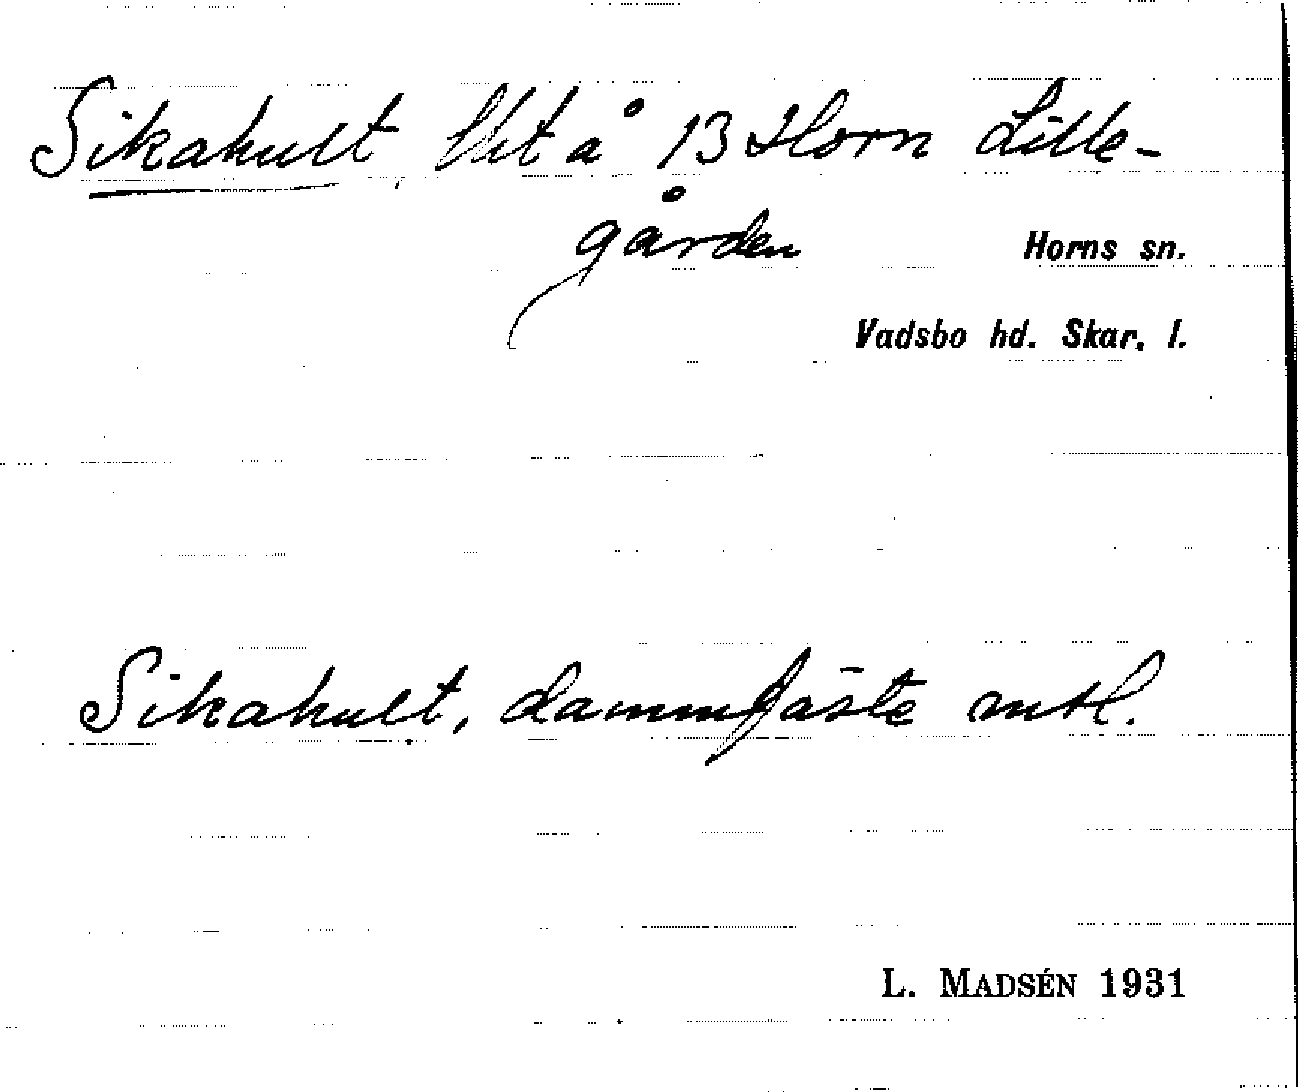 Sikahult, lht å 13 Horn Lille-
gården
Horns sn.
Vadsbo hd. Skar. l.
Sikahult, dammfäste mtl.
L. MADSÉN 1931